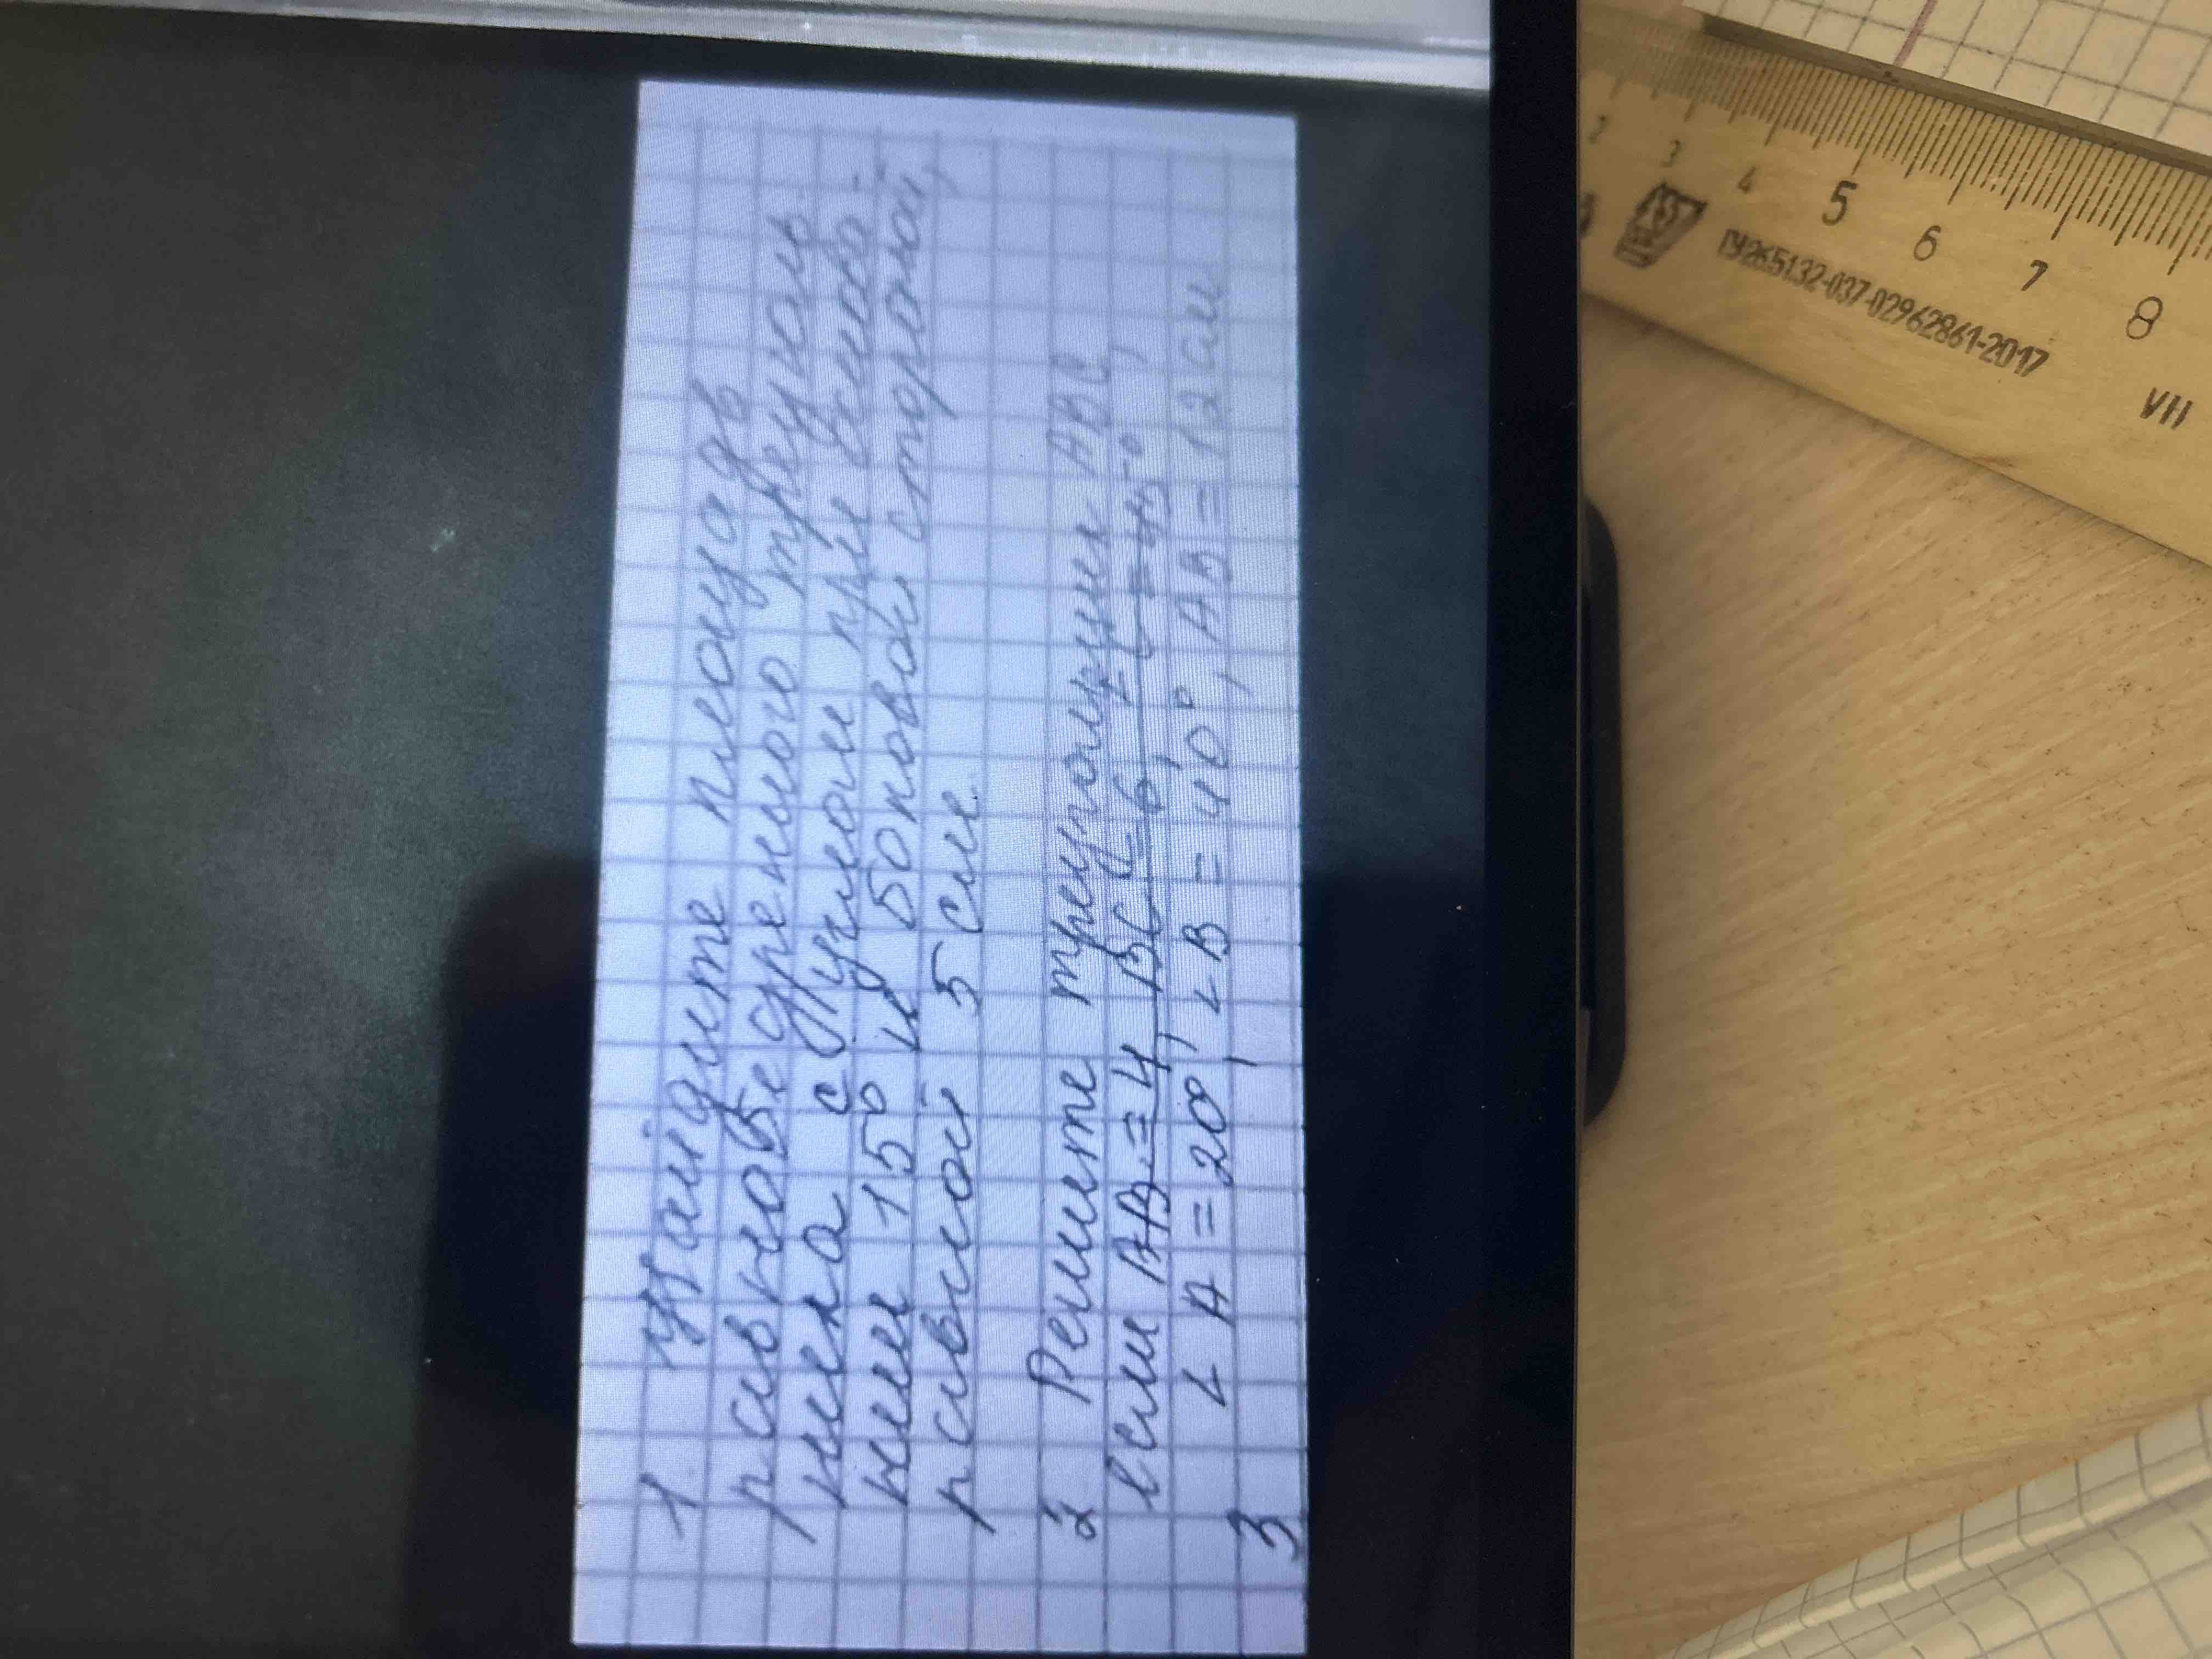 1. Найдите площадь
равнобедренного треуголь-
ника с углом при основа-
нии 15° и боковой стороной,
равной 5 см.
2 Решите треугольник ABC
если AB = 4, BC = 6, ∠C = 45°,
∠A = 20°, ∠B = 40°, AB = 12 см
3
2
3
4
5
6
7
8
ТУ265132-037-02962861-2017
УП